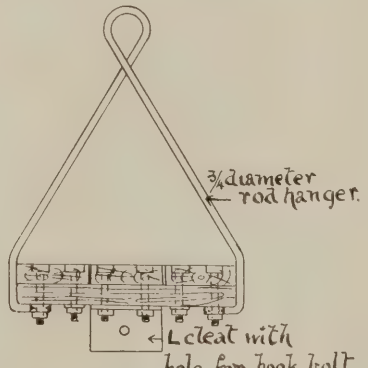 ¾ diameter
rod hanger.
L cleat with
hole for hook bolt